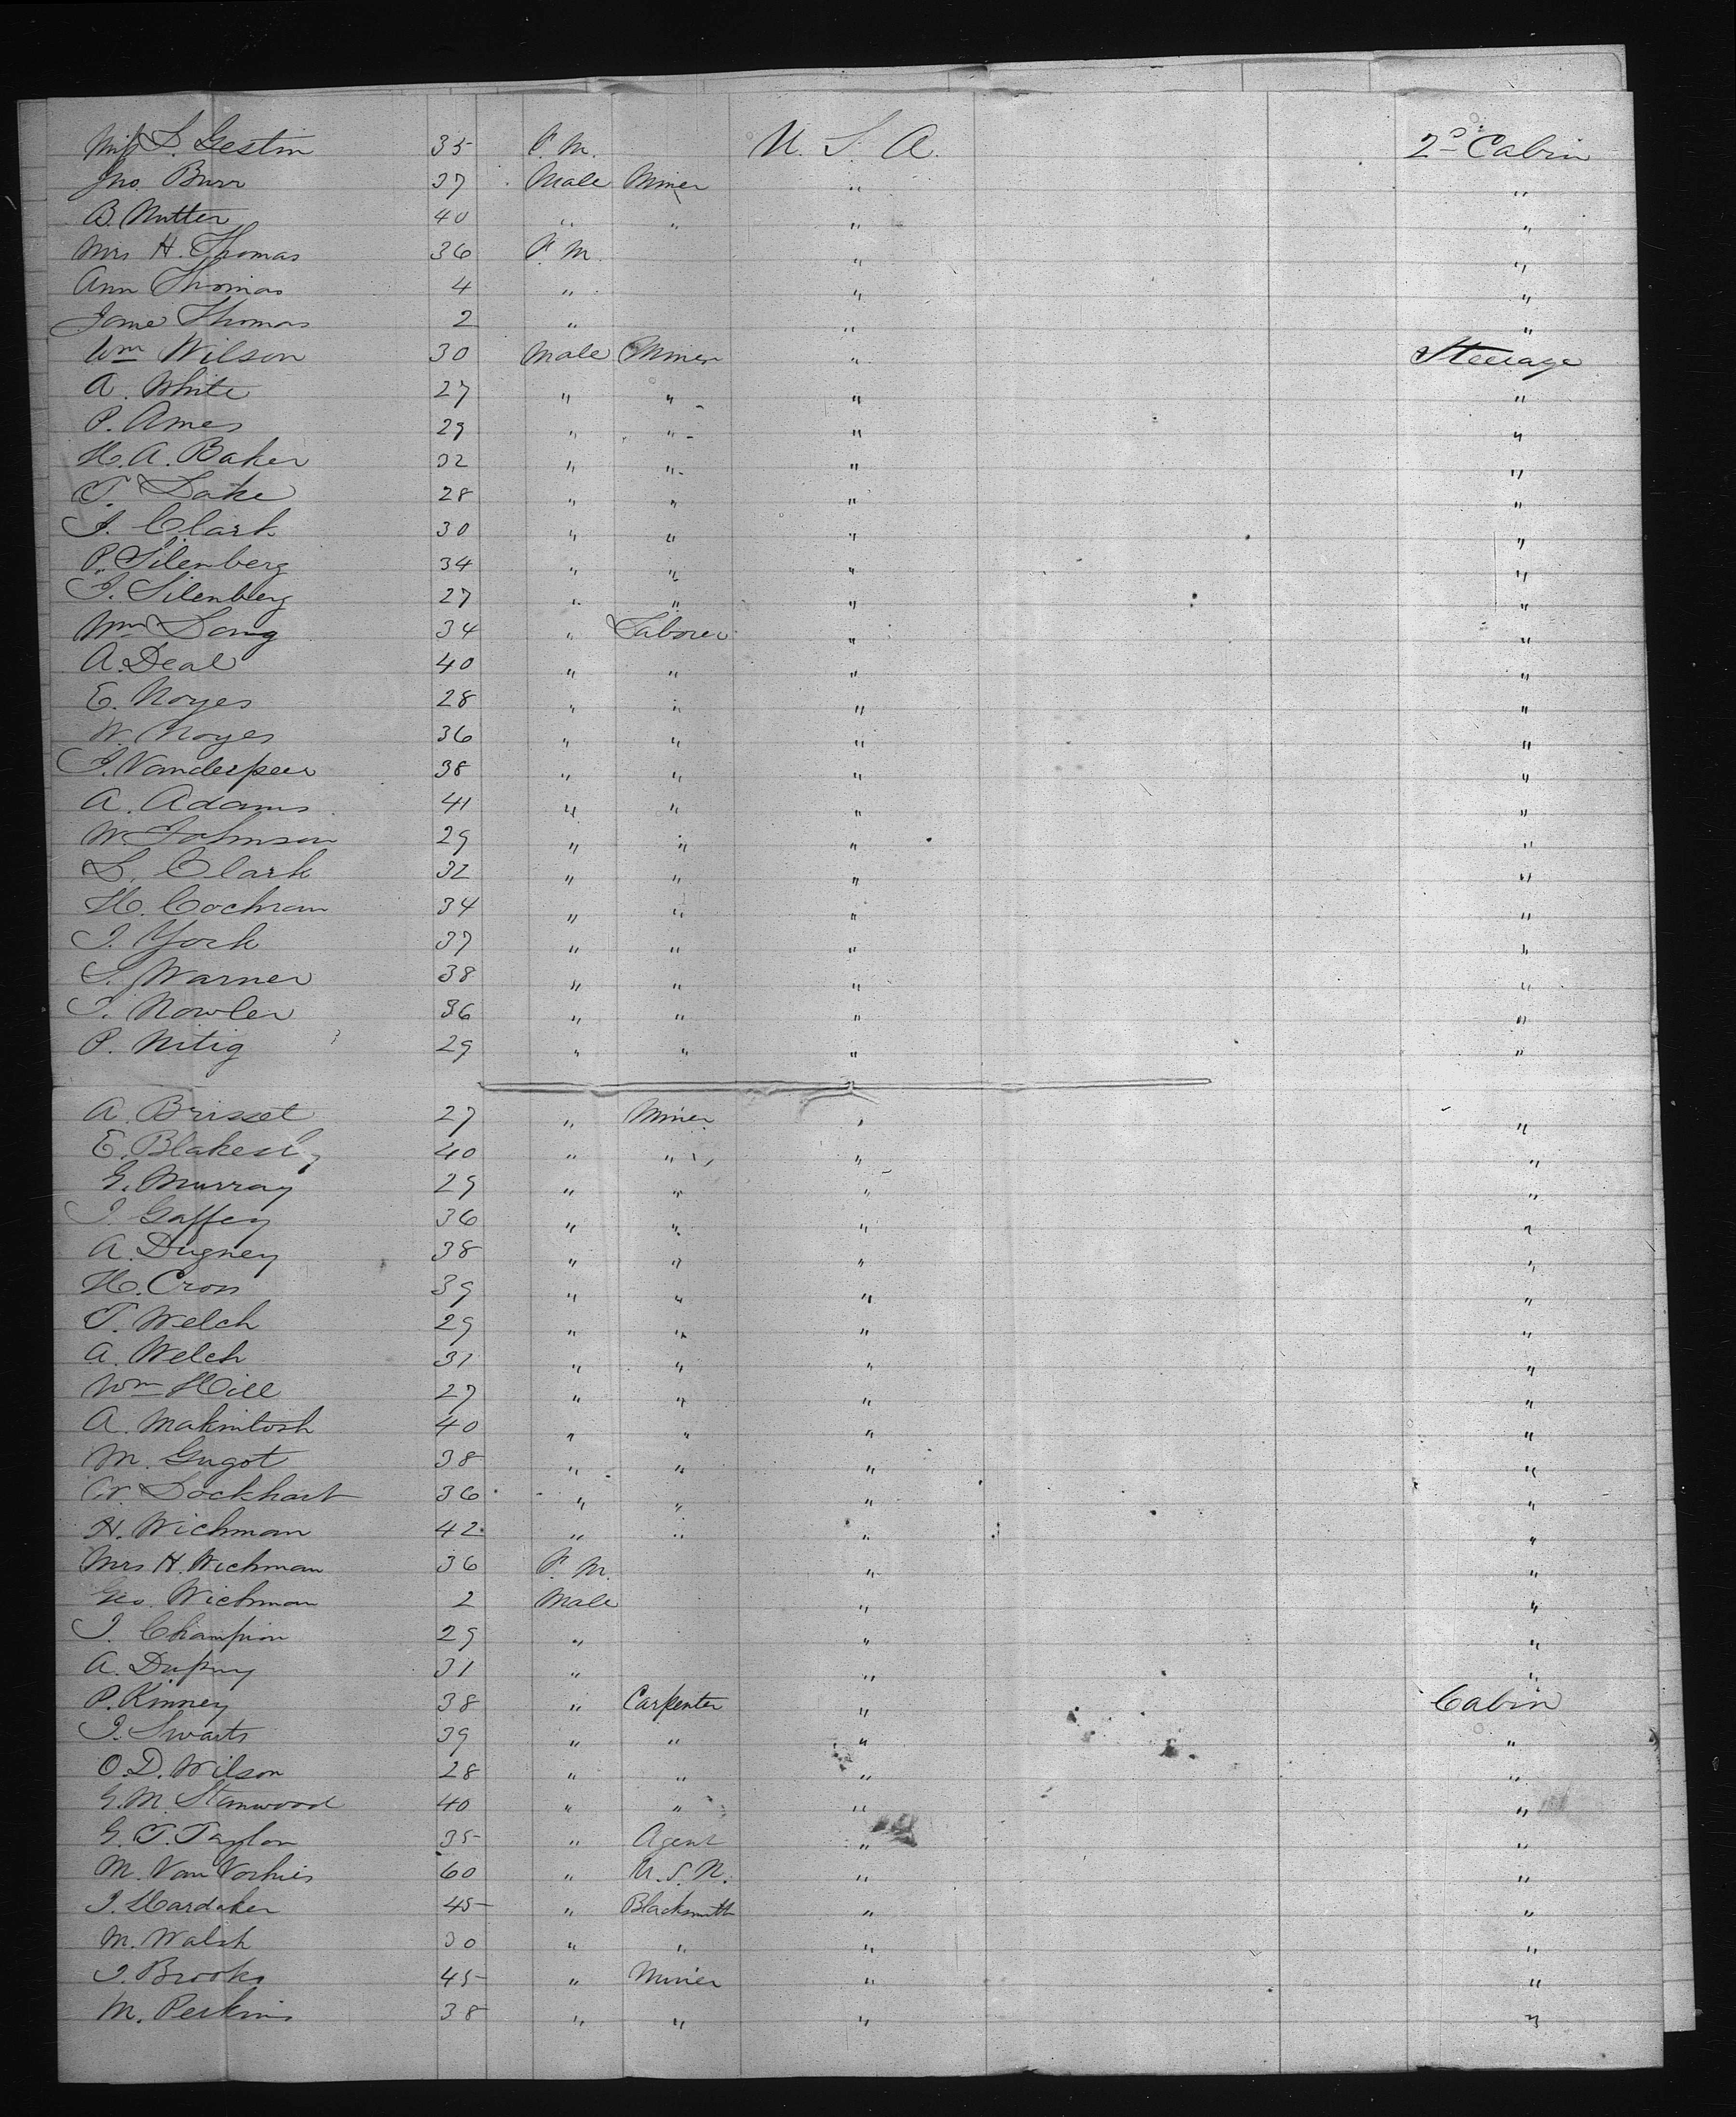 Miss L. Gestin 35 F. M. U. S. A. 2d Cabin
Jno. Burr 37 Male Miner " "
B. Nutter 40 " " " "
Mrs H. Thomas 36 F. M. " "
Ann Thomas 4 " " "
Jane Thomas 2 " " "
Wm Wilson 30 Male Miner " Steerage
A. White 27 " " " "
P. Ames 29 " " " "
H. A. Baker 32 " " " "
T. Lake 28 " " " "
J. Clark 30 " " " "
P. Silenberg 34 " " " "
J. Silenberg 27 " " " "
Wm Long 34 " Laborer " "
A. Deal 40 " " " "
E. Noyes 28 " " " "
W. Noyes 36 " " " "
J. Vanderpeer 38 " " " "
A. Adams 41 " " " "
W. Johnson 29 " " " "
L. Clark 32 " " " "
H. Cochran 34 " " " "
J. York 37 " " " "
S. Warner 38 " " " "
J. Nowler 36 " " " "
P. Nitig 29 " " " "
A. Brisset 27 " Miner " "
E. Blakesly 40 " " " "
G. Murray 29 " " " "
J. Gaffey 36 " " " "
A. Dugney 38 " " " "
H. Cross 39 " " " "
T. Welch 29 " " " "
A. Welch 31 " " " "
Wm Hill 27 " " " "
A. Makintosh 40 " " " "
M. Gugot 38 " " " "
Lockhart 36 " " " "
H. Wichman 42 " " " "
Mrs H. Wichman 36 F. M. " "
Geo. Wichman 2 Male " "
J. Champion 29 " " "
A. Dupuy 31 " " "
P. Kinney 38 " Carpenter " Cabin
J. Swarts 39 " " " "
O. D. Wilson 28 " " " "
G. M. Stanwood 40 " " " "
G. T. Taylor 35 " Agent " "
M. Van Vorhies 60 " U. S. N. " "
J. Hardaker 45 " Blacksmith " "
M. Walsh 30 " " " "
J. Brooks 45 " Miner " "
M. Perkins 38 " " " "